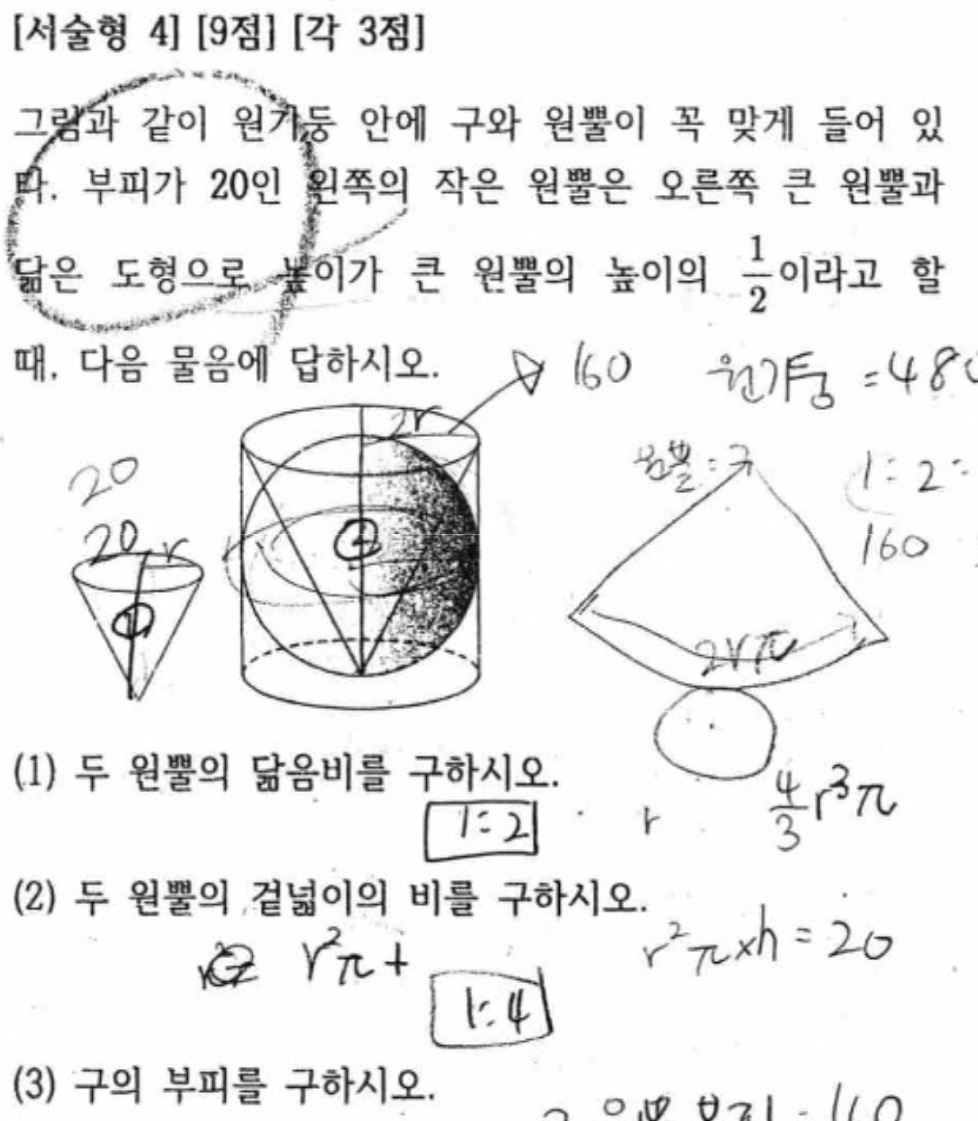 [서술형 4] [9점] [각 3점]
그림과 같이 원기둥 안에 구와 원뿔이 꼭 맞게 들어 있
다. 부피가 20인 왼쪽의 작은 원뿔은 오른쪽 큰 원뿔과
닮은 도형으로 높이가 큰 원뿔의 높이의 1/2이라고 할
때, 다음 물음에 답하시오.
160
원기둥 = 480
2r
20
원뿔 : 구
1 : 2 :
160
20
r
①
②
2rπ
(1) 두 원뿔의 닮음비를 구하시오.
1:2
r
4/3 r³π
(2) 두 원뿔의 겉넓이의 비를 구하시오.
r²π +
r²π×h = 20
1:4
(3) 구의 부피를 구하시오.